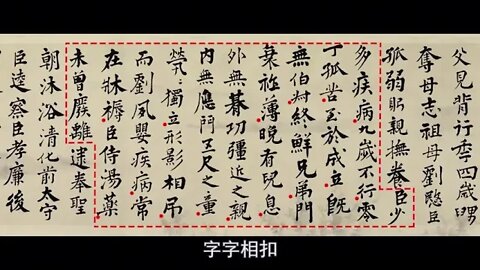 父見背行年四歲舅
奪母志祖母劉愍臣
孤弱躬親撫養臣少
多疾病九歲不行零
丁孤苦至於成立既
無伯叔終鮮兄弟門
衰祚薄晚有兒息
外無朞功彊近之親
內無應門五尺之童
煢々獨立形影相吊
而劉夙嬰疾病常
在牀褥臣侍湯藥
未曾廢離逮奉聖
朝沐浴清化前太守
臣逵察臣孝廉後
字字相扣